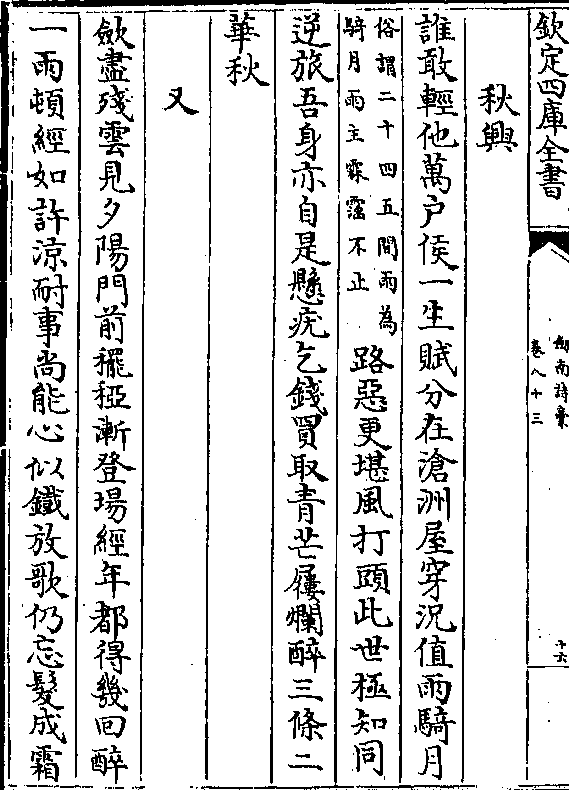 欽定四庫全書
劒南詩稾
卷八十三
十六
秋興
誰敢輕他萬户侯一生賦分在滄洲屋穿況值雨騎月
俗謂二十四五間雨為
騎月雨主霖霪不止
路惡更堪風打頭此世極知同
逆旅吾身亦自是懸疣乞錢買取青芒屨爛醉三條二
華秋
又
斂盡殘雲見夕陽門前䆉稏漸登場經年都得幾回醉
一雨頓經如許涼耐事尚能心似鐵放歌仍忘髮成霜